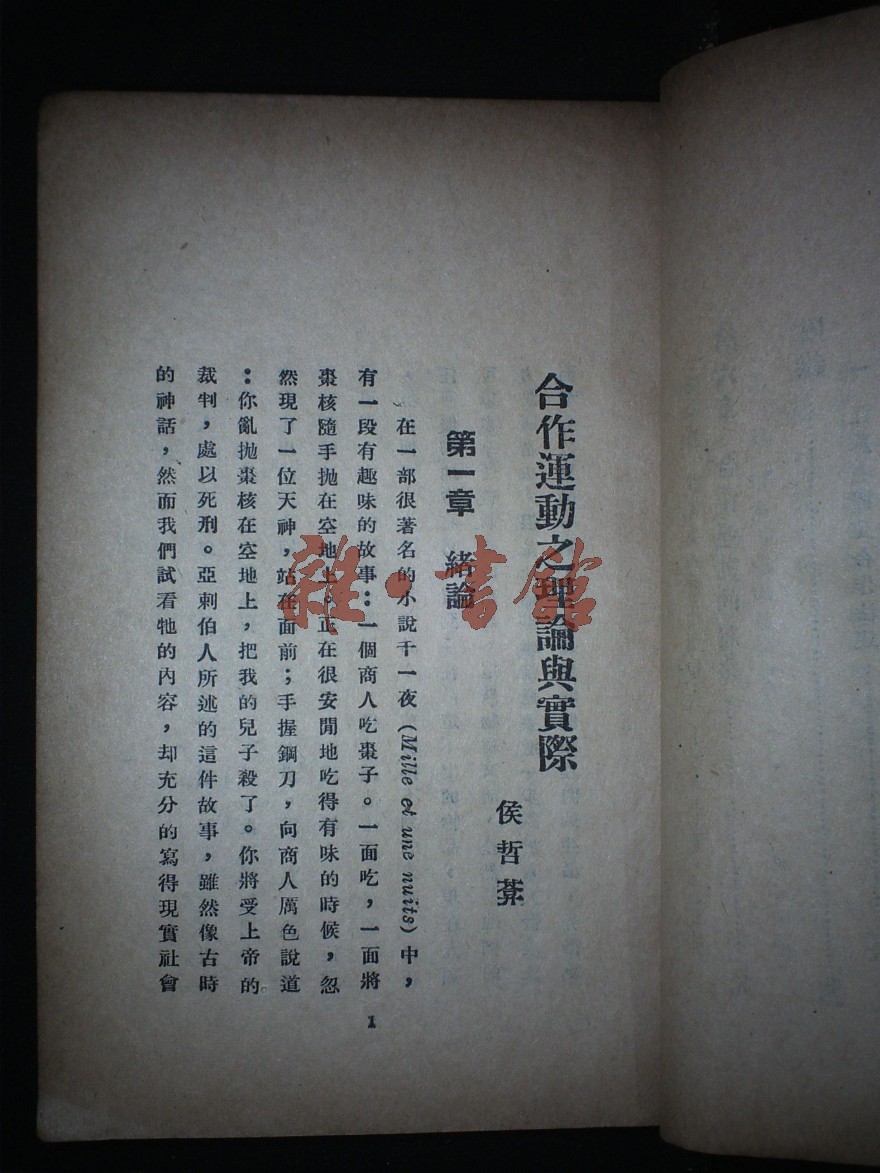 合作運動之理論與實際
侯哲葊
第一章　緒論
在一部很著名的小說千一夜(Mille et une nuits)中，
有一段有趣味的故事：一個商人吃棗子。一面吃，一面將
棗核隨手拋在空地上。正在很安閒地吃得有味的時候，忽
然現了一位天神，站在面前；手握鋼刀，向商人厲色說道
：你亂拋棗核在空地上，把我的兒子殺了。你將受上帝的
裁判，處以死刑。亞剌伯人所述的這件故事，雖然像古時
的神話，然而我們試看牠的內容，却充分的寫得現實社會
1
雜·書館